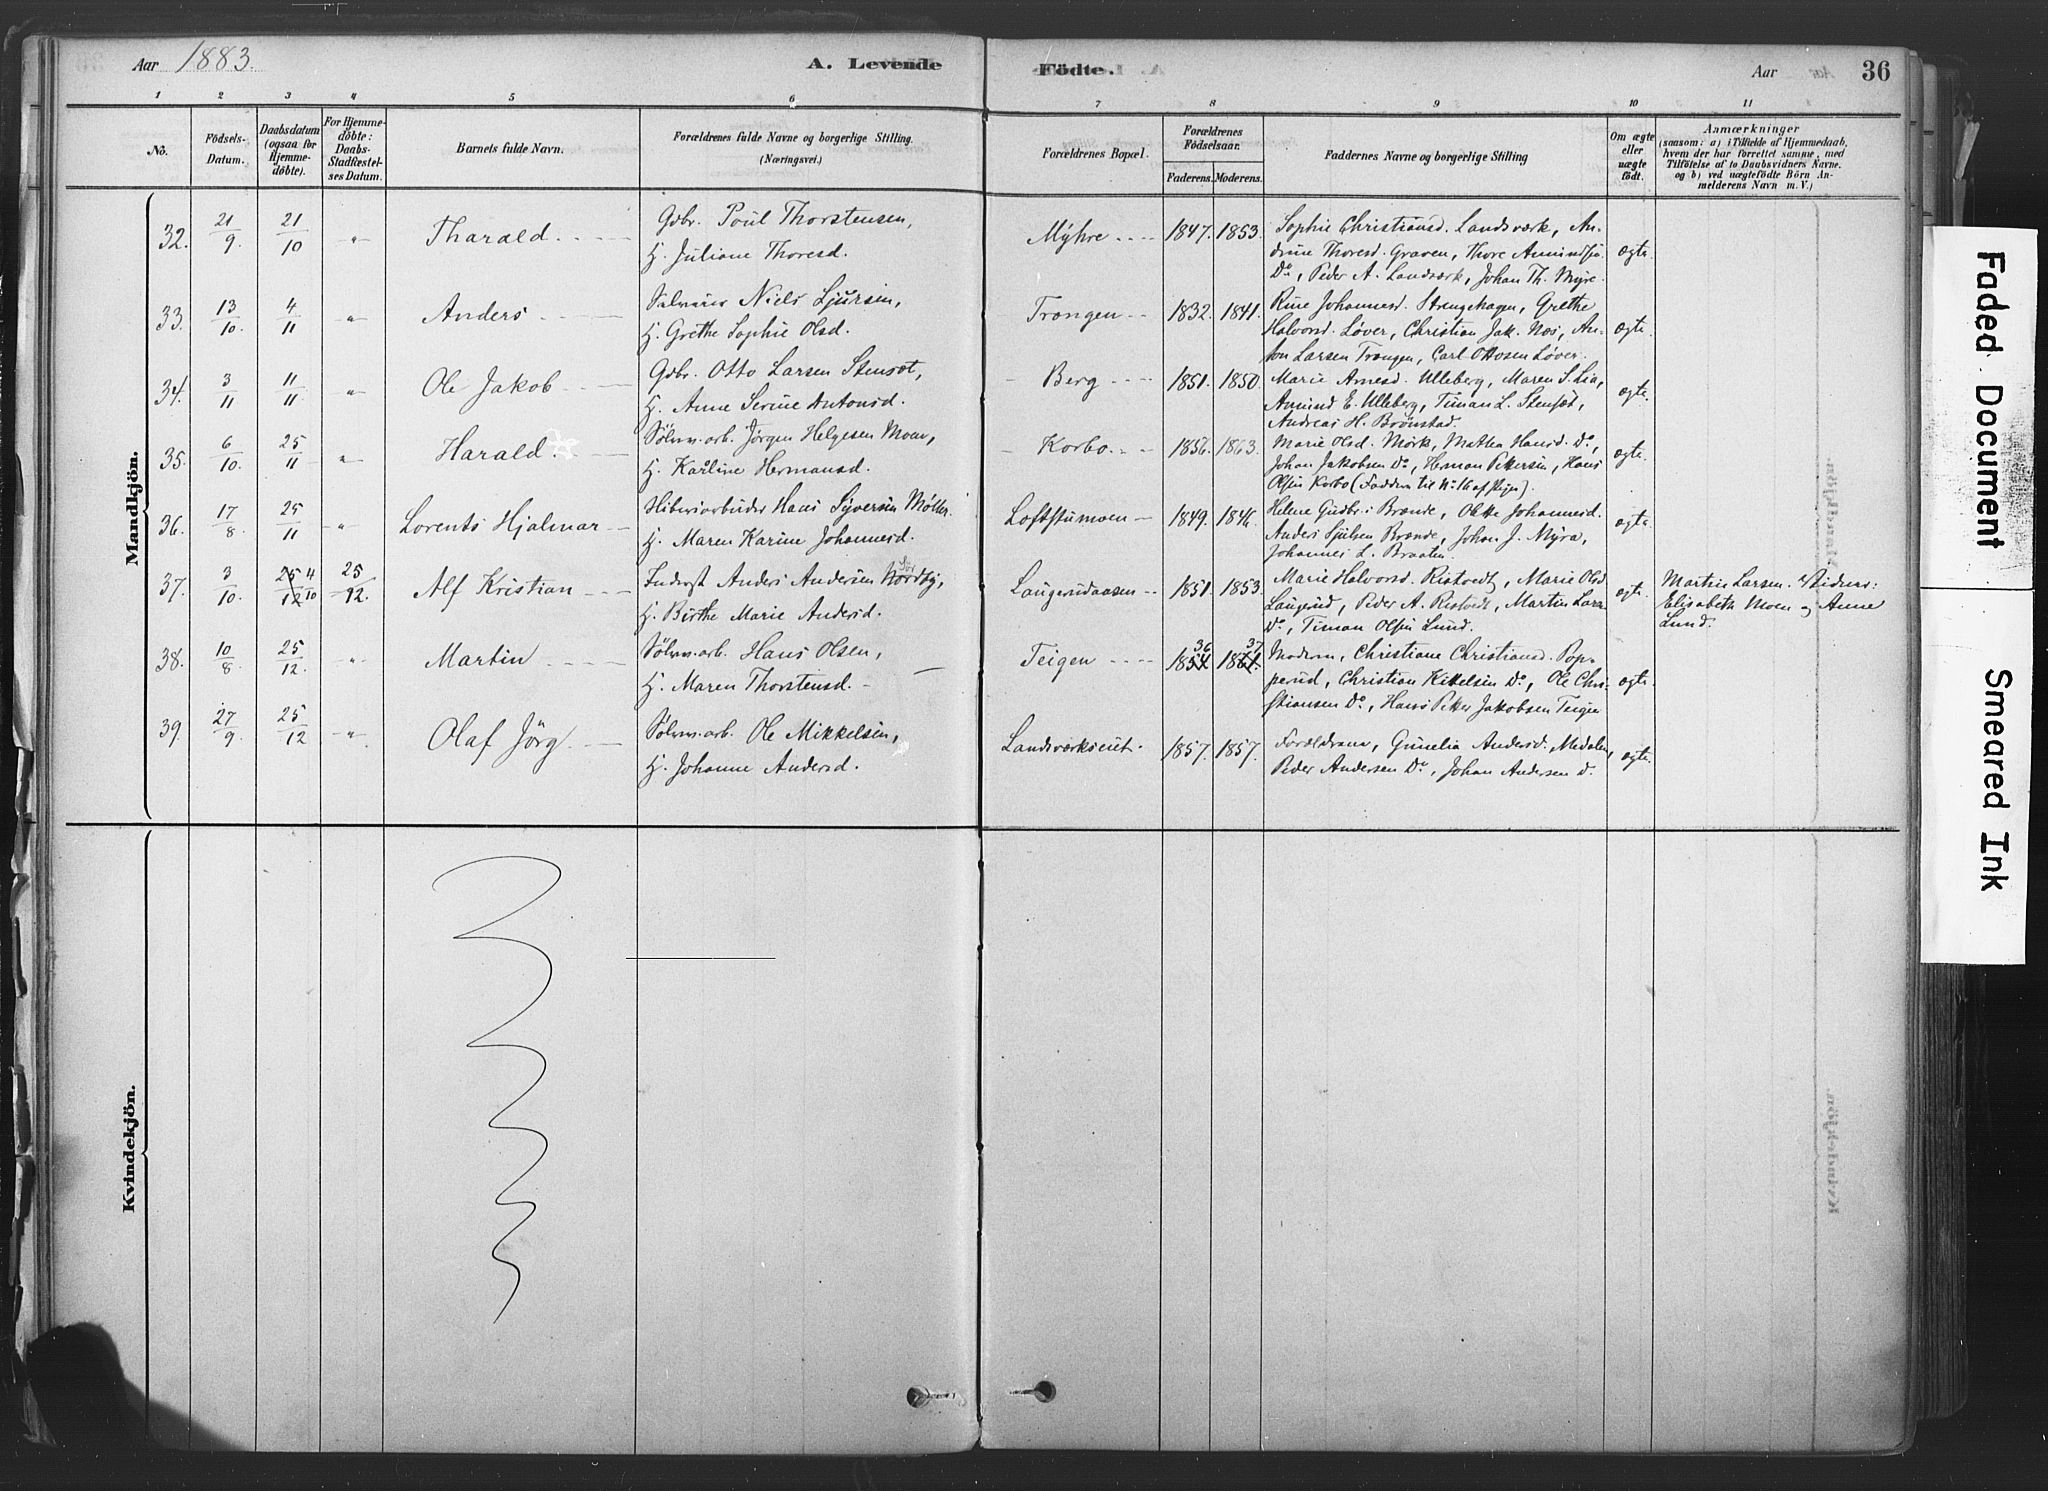 Aar 1883.
A. Levende
Födte.
Aar
36
1 2 3 4 5 6 7 8 9 10 11
No.
Födsels-
Datum.
Daabsdatum
(ogsaa for
Hjemme-
döbte).
For Hjemme-
döbte:
Daabs-
Stadfæstel-
ses Datum.
Barnets fulde Navn.
Forældrenes fulde Navne og borgerlige Stilling.
(Næringsvei.)
Forældrenes Bopæl.
Forældrenes
Födselsaar.
Faderens. Moderens.
Faddernes Navne og borgerlige Stilling
Om ægte
eller
uægte
födt.
Anmærkninger
(saasom: a) i Tilfælde af Hjemmedaab,
hvem der har forrettet samme, med
Tilföielse af to Daabsvidners Navne.
og b) ved uægtefödte Börn An-
melderens Navn m. V.)
Mandkjön.
32. 21/9 21/10 " Tharald
Gdbr. Poul Thorstensen,
H. Juliane Thoresd.
Myhre 1847. 1853.
Sophie Christiansd. Landsværk, An-
drine Thoresd. Graven, Thore Amundsen
Do, Peder A. Landsværk, Johan Th. Myre.
ægte.
33. 13/10 4/11 " Anders
Niels Ljursen,
H. Grethe Sophie Olsd.
Trangen 1832. 1841.
Rine Johannesd. Strengehagen, Grethe
Halvorsd. Løver, Christian Jak. Nos, An-
ton Larsen Trangen, Carl Ottosen Løver.
ægte.
34. 3/11 11/11 " Ole Jakob
Gdbr. Otto Larsen Stensæt,
H. Anne Serine Antonsd.
Berg 1851. 1850.
Marie Arnesd. Ulleberg, Maren S. Lia,
Amund E. Ulleberg, Timan L. Stensæt,
Andreas H. Brønstad.
ægte.
35. 6/10 25/11 " Harald.
Sølvv. arb. Jørgen Helgesen Moen,
H. Karline Hermansd.
Korbo 1856. 1863.
Marie Olsd. Mørk, Mathea Hansd. Do,
Johan Jakobsen Do, Herman Pettersen, Hans
Olsen Korbo (Faddere til No 16 afskrjn).
ægte.
36. 17/8 25/11 " Lorents Hjalmar
Hans Syversen Møller.
H. Maren Karine Johannesd.
Loftstumoen 1849. 1846.
Helene Gudbr. Brænde, Olette Johannesd.
Anders Sjulsen Brænde, Johan J. Myra,
Johannes L. Braaten.
ægte.
37. 3/10 25/12 4/10 25/12 Alf Kristian
Inderst Anders Andersen Nordby,
H. Birthe Marie Andersd.
Laugerudaasen 1851. 1853.
Marie Halvorsd. Ristvedt, Marie Olsd.
Laugerud, Peder A. Ristvedt, Martin Lars.
Do, Timan Olsen Lund.
ægte.
Martin Larsen. Vidner:
Elisabeth Moen og Anne
Lund.
38. 10/8 25/12 " Martin
Sølvv. arb. Hans Olsen,
H. Maren Thorstensd.
Teigen 1854 36 1861. 37
Moderen, Christiane Christiansd. Pop-
perud, Christian Kittelsen Do, Ole Chri-
stiansen Do, Hans Petter Jakobsen Teigen
ægte.
39. 27/9 25/12 " Olaf Jörg.
Sølvv. arb. Ole Mikkelsen,
H. Johanne Andersd.
Landsværkseiet. 1857. 1857.
Forældrene, Gunelia Andersd. Medalen,
Peder Andersen Do, Johan Andersen Do.
ægte.
Kvindekjön.
Faded Document
Smeared Ink